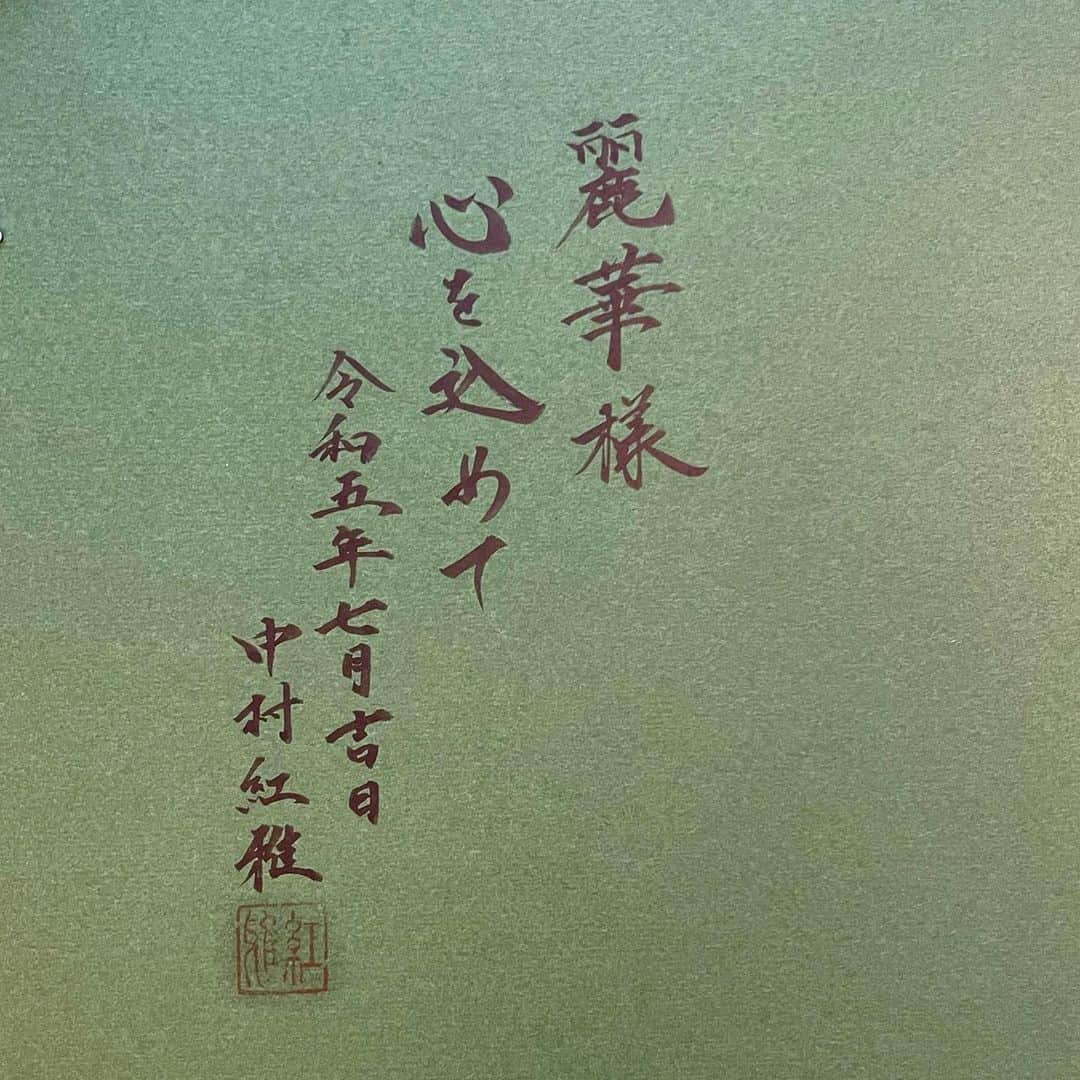 麗華様
心を込めて
令和五年七月吉日
中村紅雅
紅雅